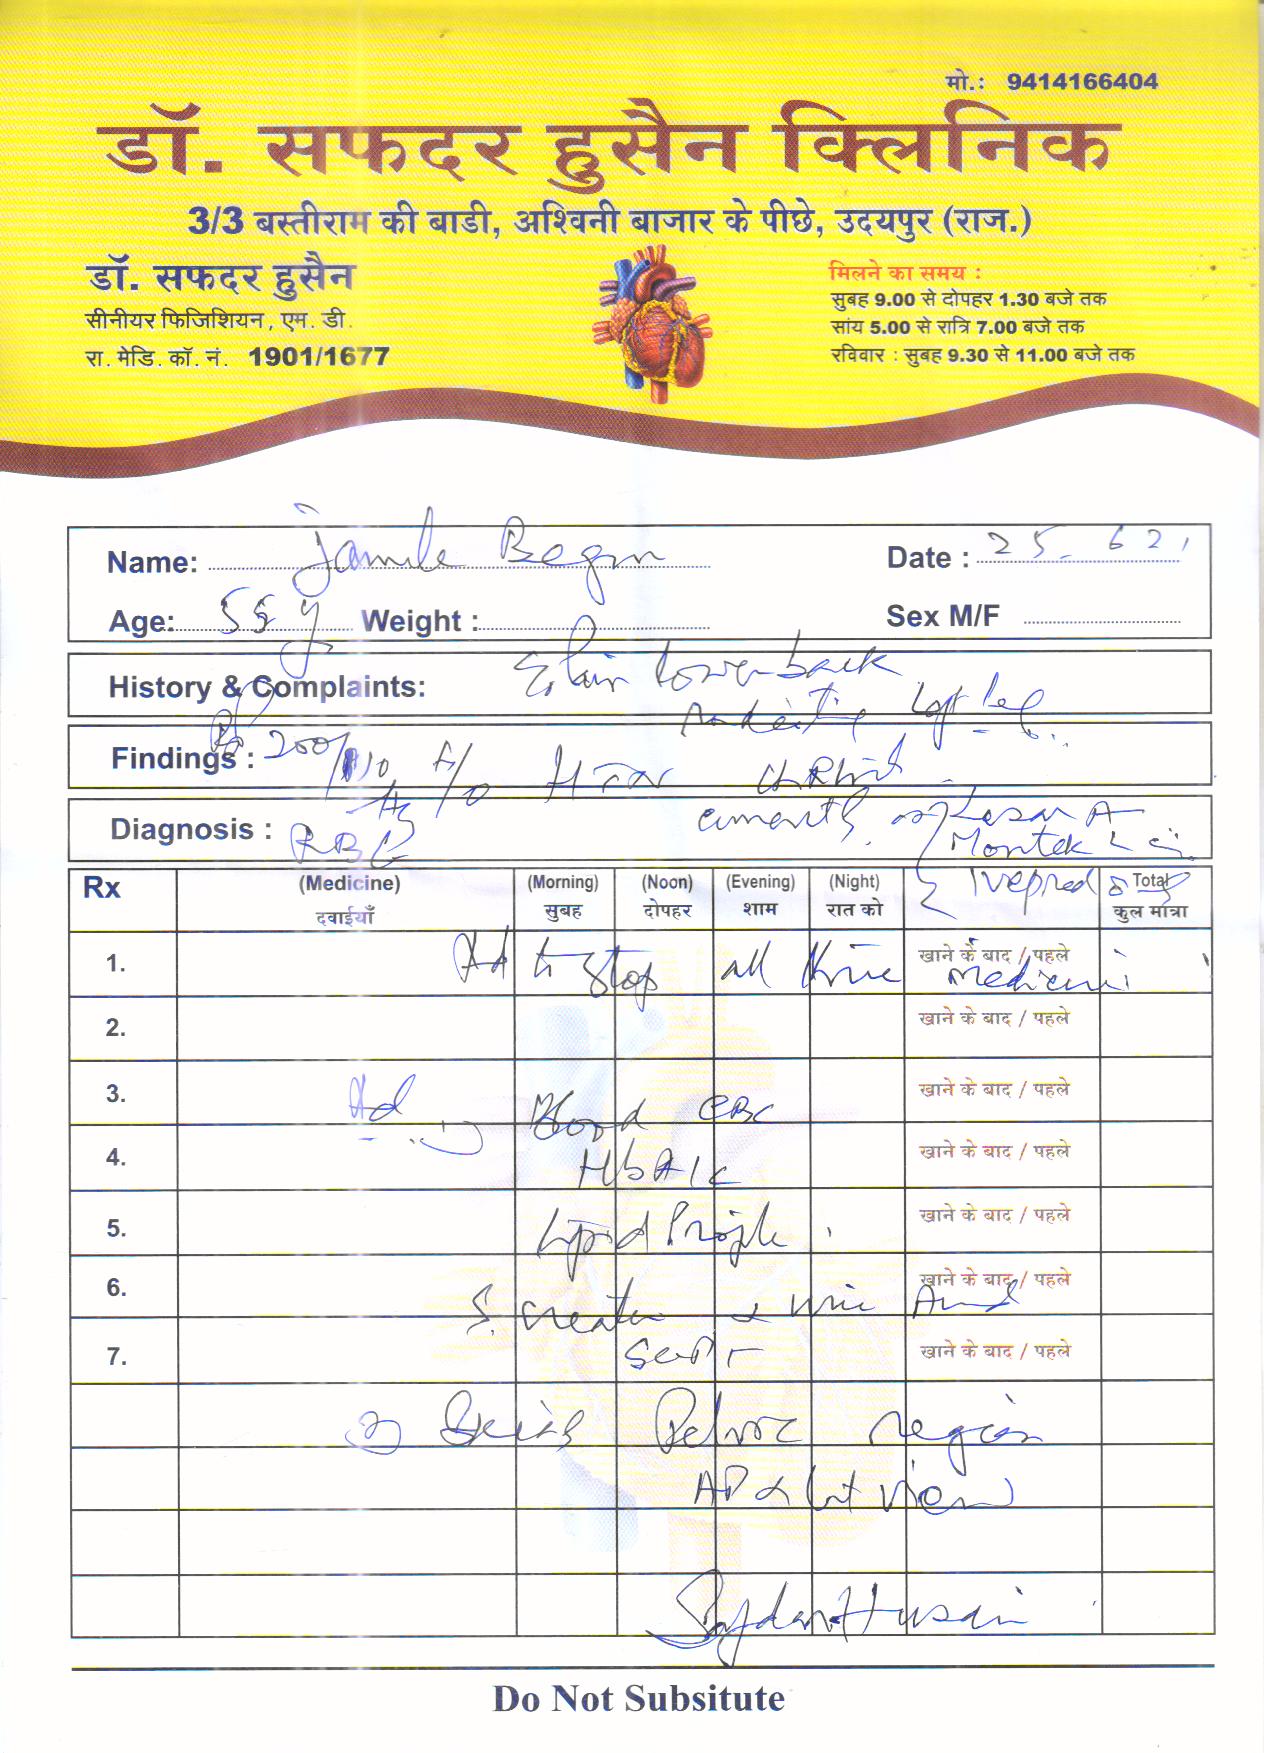 मो.: 9414166404
डॉ. सफदर हुसैन क्लिनिक
3/3 बस्तीराम की बाडी, अश्विनी बाजार के पीछे, उदयपुर (राज.)
डॉ. सफदर हुसैन
सीनीयर फिजिशियन, एम. डी.
रा. मेडि. कॉ. नं. 1901/1677
मिलने का समय :
सुबह 9.00 से दोपहर 1.30 बजे तक
सांय 5.00 से रात्रि 7.00 बजे तक
रविवार : सुबह 9.30 से 11.00 बजे तक
Name: Jamile Begm Date : 25. 6 21
Age: Weight : Sex M/F
History & Complaints: Pain lower back
left leg
Findings : 200/110
Diagnosis : RBC
Losar A
Montek LC
Rx (Medicine) (Morning) (Noon) (Evening) (Night) Total
दवाईयाँ सुबह दोपहर शाम रात को कुल मात्रा
1. Ad to stop all three medicine खाने के बाद / पहले
2. खाने के बाद / पहले
3. Ad Blood CBC खाने के बाद / पहले
4. HbA1c खाने के बाद / पहले
5. Lipid Profile खाने के बाद / पहले
6. S. Creatin & uric Acid खाने के बाद / पहले
7. SGPT खाने के बाद / पहले
Pelvic region
AP & Lat view
Safdar Husain
Do Not Subsitute